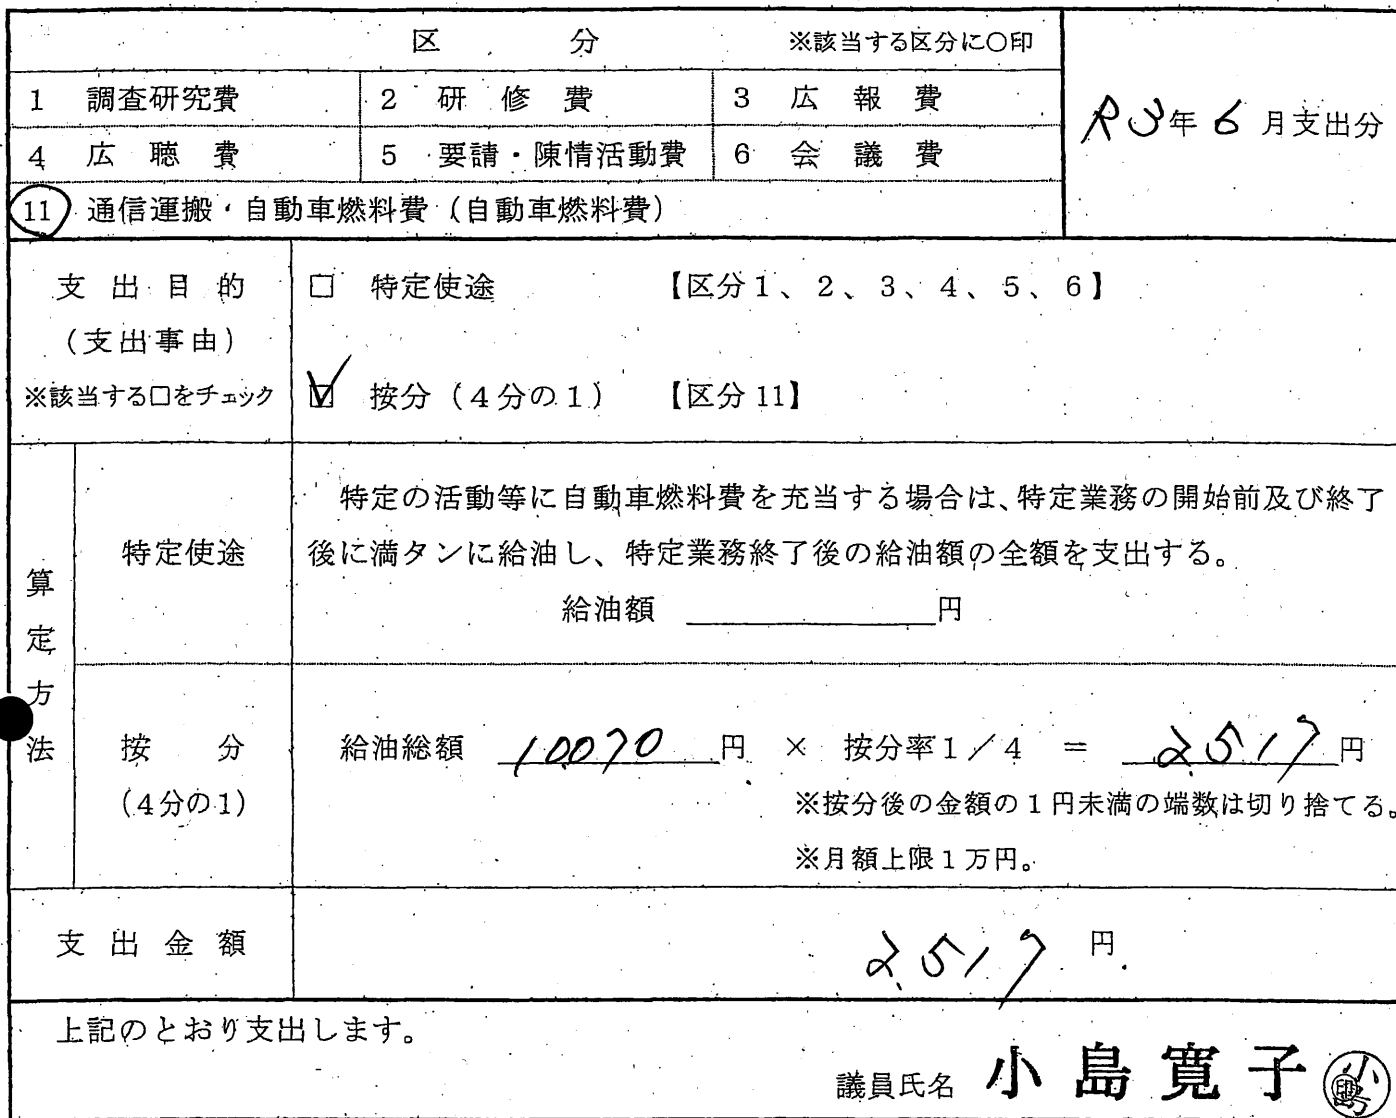 区　分　※該当する区分に○印
1 調査研究費　2 研修費　3 広報費
R3年6月支出分
4 広聴費　5 要請・陳情活動費　6 会議費
11 通信運搬・自動車燃料費（自動車燃料費）
支出目的　□ 特定使途　【区分1、2、3、4、5、6】
（支出事由）
※該当する□をチェック　☑ 按分（4分の1）　【区分11】
算定方法
特定使途
特定の活動等に自動車燃料費を充当する場合は、特定業務の開始前及び終了
後に満タンに給油し、特定業務終了後の給油額の全額を支出する。
給油額　円
按分　給油総額　10,070円 × 按分率1／4 = 2,517円
（4分の1）　※按分後の金額の1円未満の端数は切り捨てる。
※月額上限1万円。
支出金額　2,517円
上記のとおり支出します。
議員氏名 小島寛子